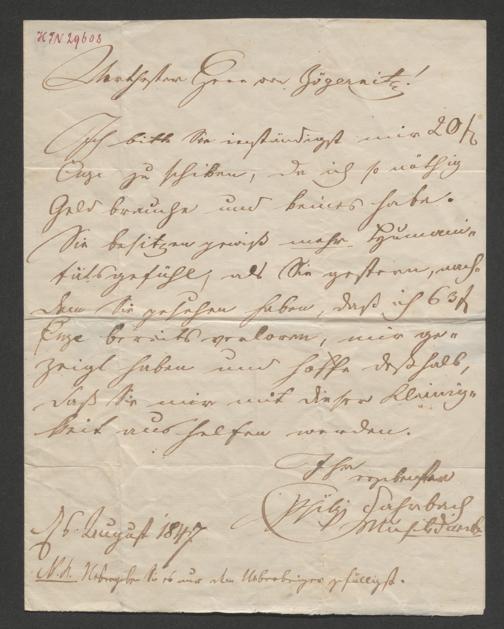 HIN 29603
Werthester Herr von Zögernitz!
Ich bitte Sie inständigst mir 20 f
Cmze zu schiken, da ich so nöthig
Geld brauche und keines habe.
Sie besitzen gewiß mehr Humani-
tätsgefühl, als Sie gestern, nach-
dem Sie gesehen haben, daß ich 63 f
Cmze bereits verloren, mir ge-
zeigt haben und hoffe deßhalb,
daß Sie mir mit dieser Kleinig-
keit aushelfen werden.
Ihr
ergebenster
Philip Fahrbach
Musikdirector
6. August 1847
N.b. Uebergeben Sie es nur dem Ueberbringer gefälligst.